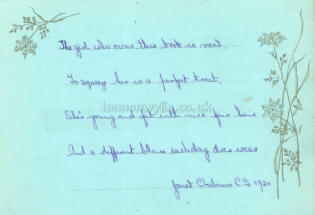 The girl who owns this book is neat,
To squeeze her is a perfect treat,
She's young and fat with nice fair hair
And a different blouse each day does wear
Janet 1920
lennonwylie.co.uk